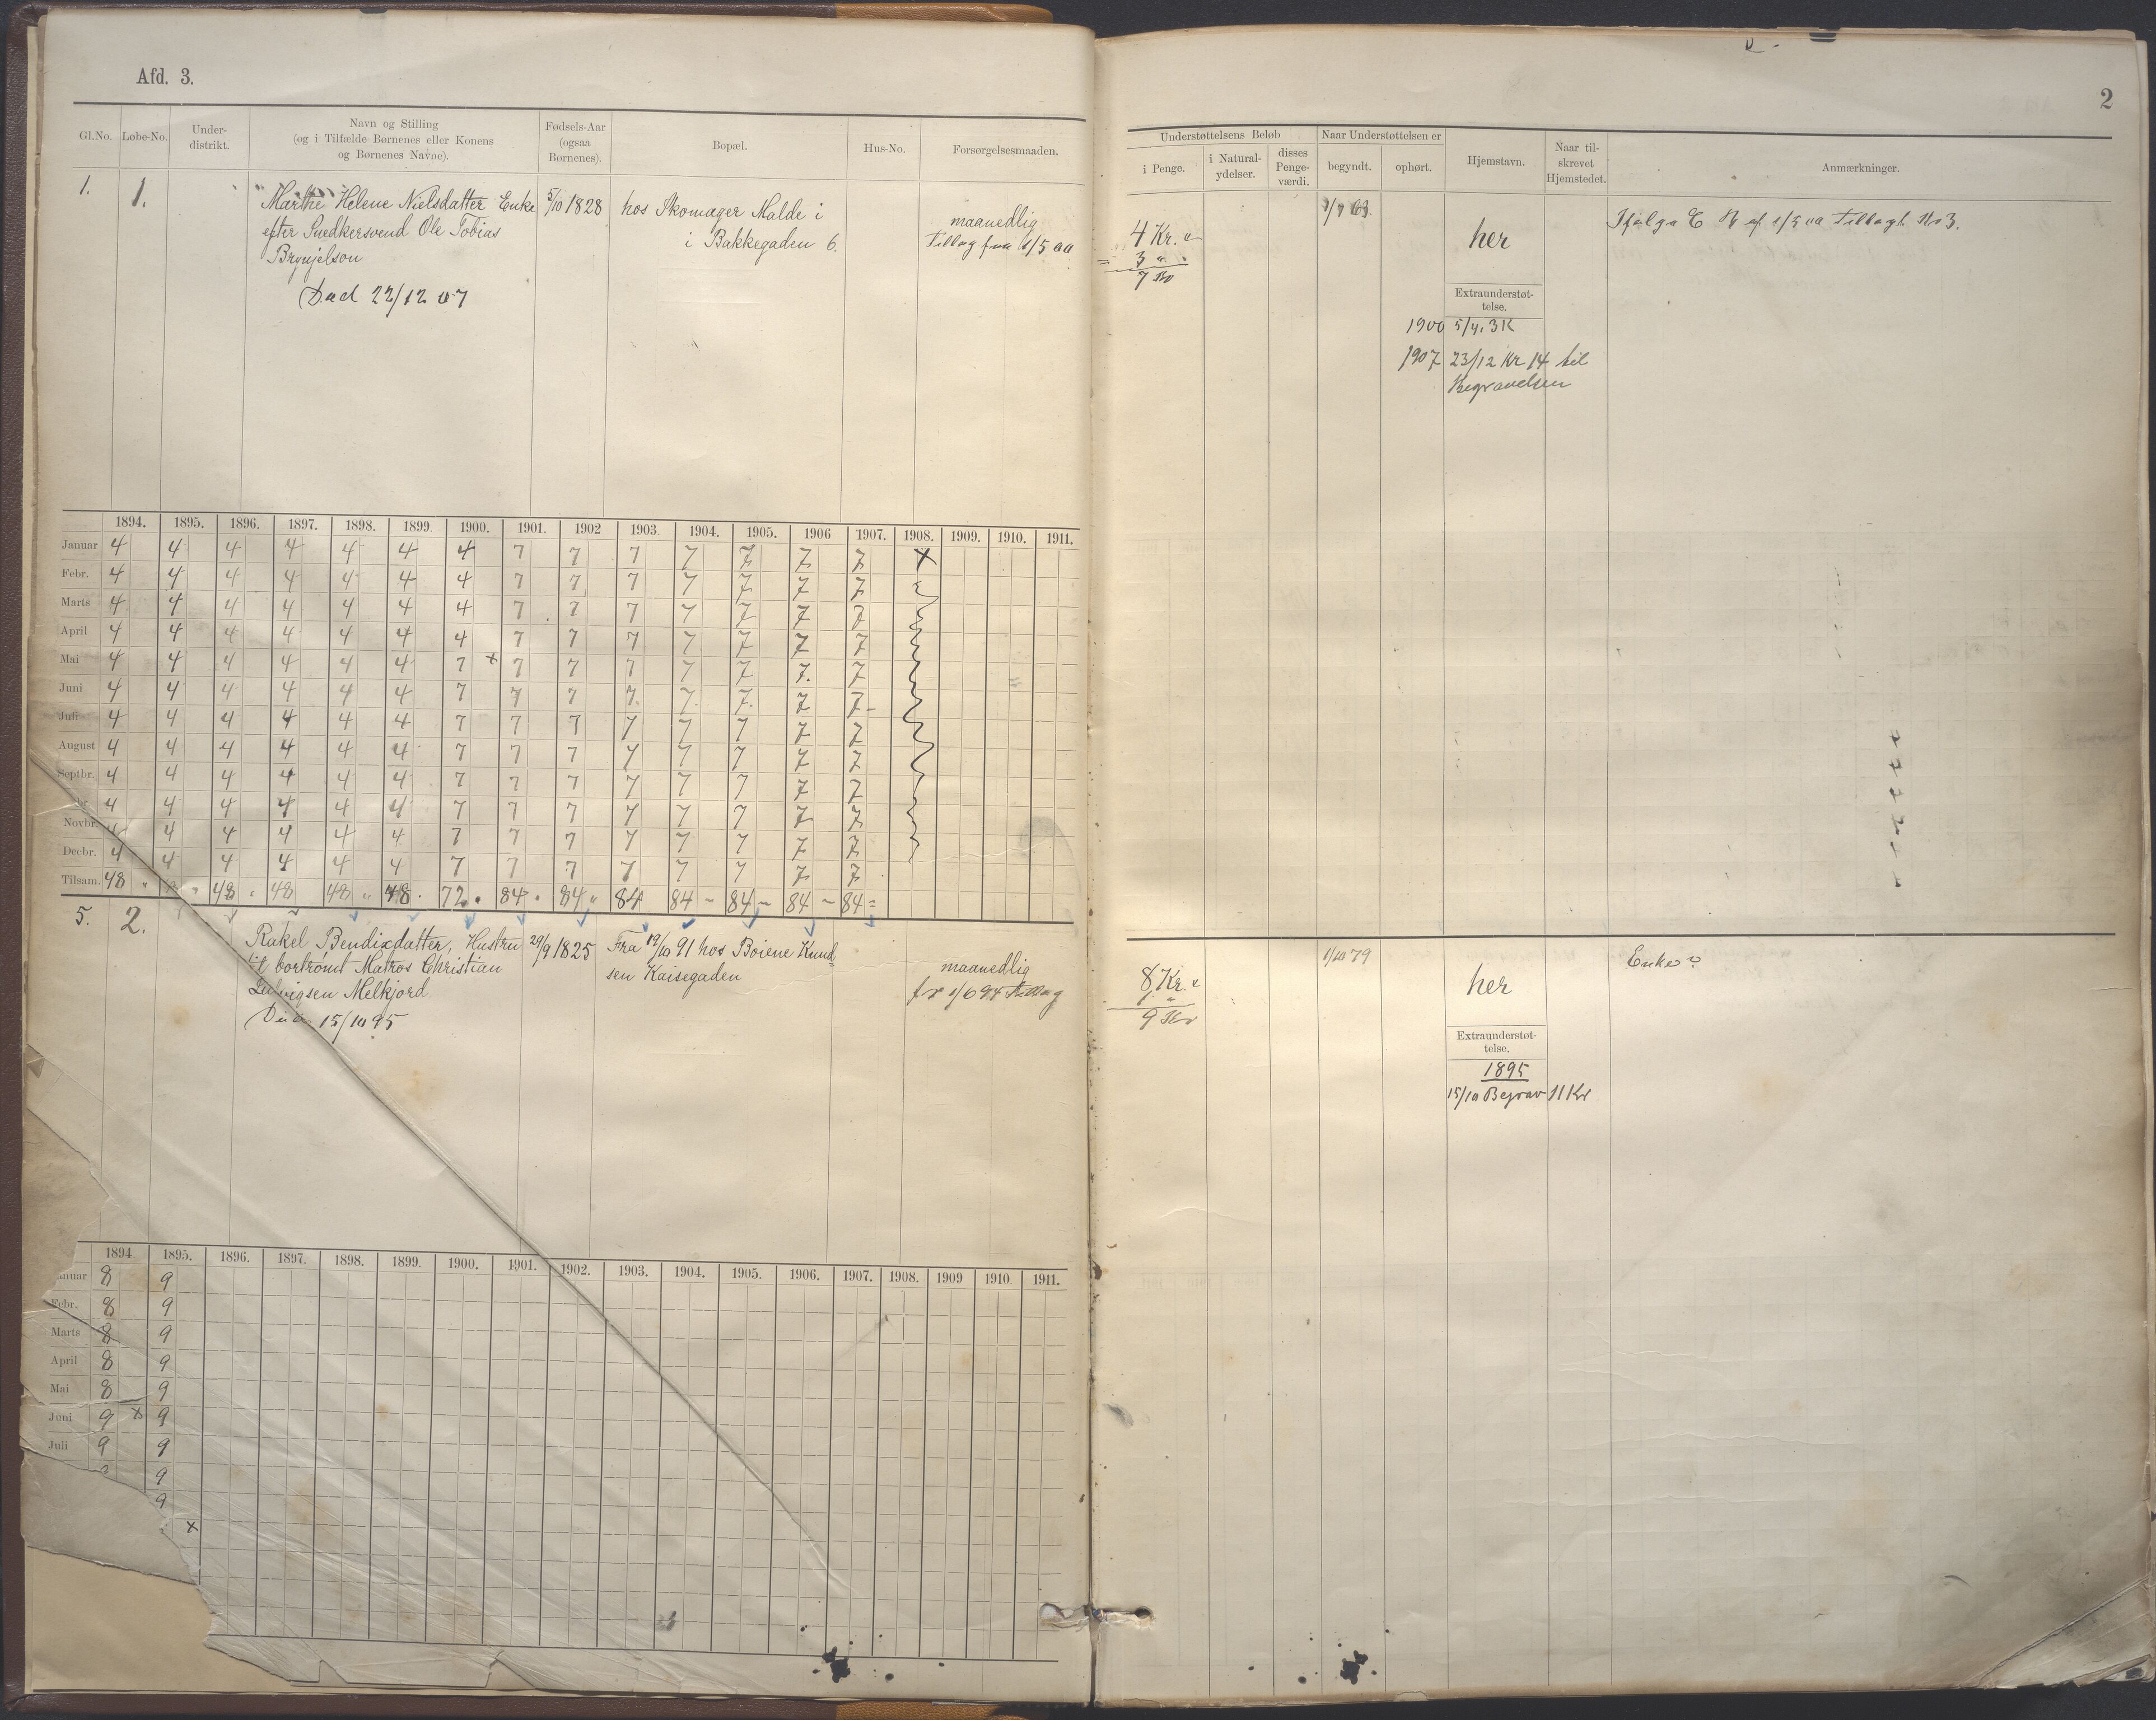 Afd. 3.
2
Gl.No. Løbe-No. Under-distrikt. Navn og Stilling (og i Tilfælde Børnenes eller Konens og Børnenes Navne). Fødsels-Aar (ogsaa Børnenes). Bopæl. Hus-No. Forsørgelsesmaaden.
Understøttelsens Beløb Naar Understøttelsen er
i Penge. i Natural-ydelser. disses Penge-værdi. begyndt. ophørt. Hjemstavn. Naar til-skrevet Hjemstedet. Anmærkninger.
1. 1. Marthe Helene Nielsdatter Enke 5/10 1828 hos Skomager Malde i
efter Snedkersvend Ole Tobias i Bakkegaden 6. maanedlig
Brynjelson Tillæg fra 1/5 00
Død 22/12 07
4 Kr. "
3 " "
7 Kr
her
Ifølge
af 1/5 00 Tillagt Kr 3.
Extraunderstøt-
telse.
1900 5/4. 3 K
1907 23/12 Kr 14 til
Begravelsen
1894. 1895. 1896. 1897. 1898. 1899. 1900. 1901. 1902 1903. 1904. 1905. 1906 1907. 1908. 1909. 1910. 1911.
Januar 4 4 4 4 4 4 4 7 7 7 7 7 7 7 x
Febr. 4 4 4 4 4 4 4 7 7 7 7 7 7 7
Marts 4 4 4 4 4 4 4 7 7 7 7 7 7 7
April 4 4 4 4 4 4 4 7 7 7 7 7 7 7
Mai 4 4 4 4 4 4 7 x 7 7 7 7 7 7 7
Juni 4 4 4 4 4 4 7 7 7 7 7 7 7 7
Juli 4 4 4 4 4 4 7 7 7 7 7 7 7 7
August 4 4 4 4 4 4 7 7 7 7 7 7 7 7
Septbr. 4 4 4 4 4 4 7 7 7 7 7 7 7 7
4 4 4 4 4 4 7 7 7 7 7 7 7 7
Novbr. 4 4 4 4 4 4 7 7 7 7 7 7 7 7
Decbr. 4 4 4 4 4 4 7 7 7 7 7 7 7 7
Tilsam. 48 48 48 48 48 72 84 84 84 84 84 84 84
5. 2. Rakel Bendixdatter, Hustru 29/9 1825 Fra 19/10 91 hos Boiene Knud=
til bortrømt Matros Christian sen Kaisegaden maanedlig
Ludvigsen Melkjord fr 1/6 94 Tillæg
Død 15/10 95
8 Kr. "
1 "
9 Kr
1/10 79
her
Enke?
Extraunderstøt-
telse.
1895
15/10 Begrav 11 Kr
1894. 1895. 1896. 1897. 1898. 1899. 1900. 1901. 1902. 1903. 1904. 1905. 1906. 1907. 1908. 1909 1910. 1911.
anuar 8 9
Febr. 8 9
Marts 8 9
April 8 9
Mai 8 9
Juni 9 x 9
Juli 9 9
9
9
x